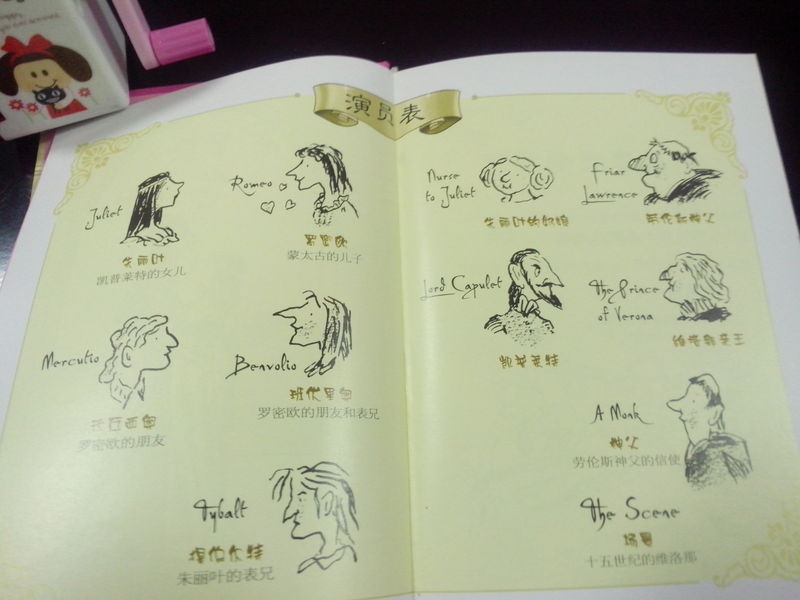 演员表
Juliet
朱丽叶
凯普莱特的女儿
Romeo
罗密欧
蒙太古的儿子
Mercutio
茂丘西奥
罗密欧的朋友
Benvolio
班伏里奥
罗密欧的朋友和表兄
Tybalt
提伯尔特
朱丽叶的表兄
Nurse
to Juliet
朱丽叶的奶娘
Friar
Lawrence
劳伦斯神父
Lord Capulet
凯普莱特
The Prince
of Verona
维洛那亲王
A Monk
神父
劳伦斯神父的信使
The Scene
场景
十五世纪的维洛那